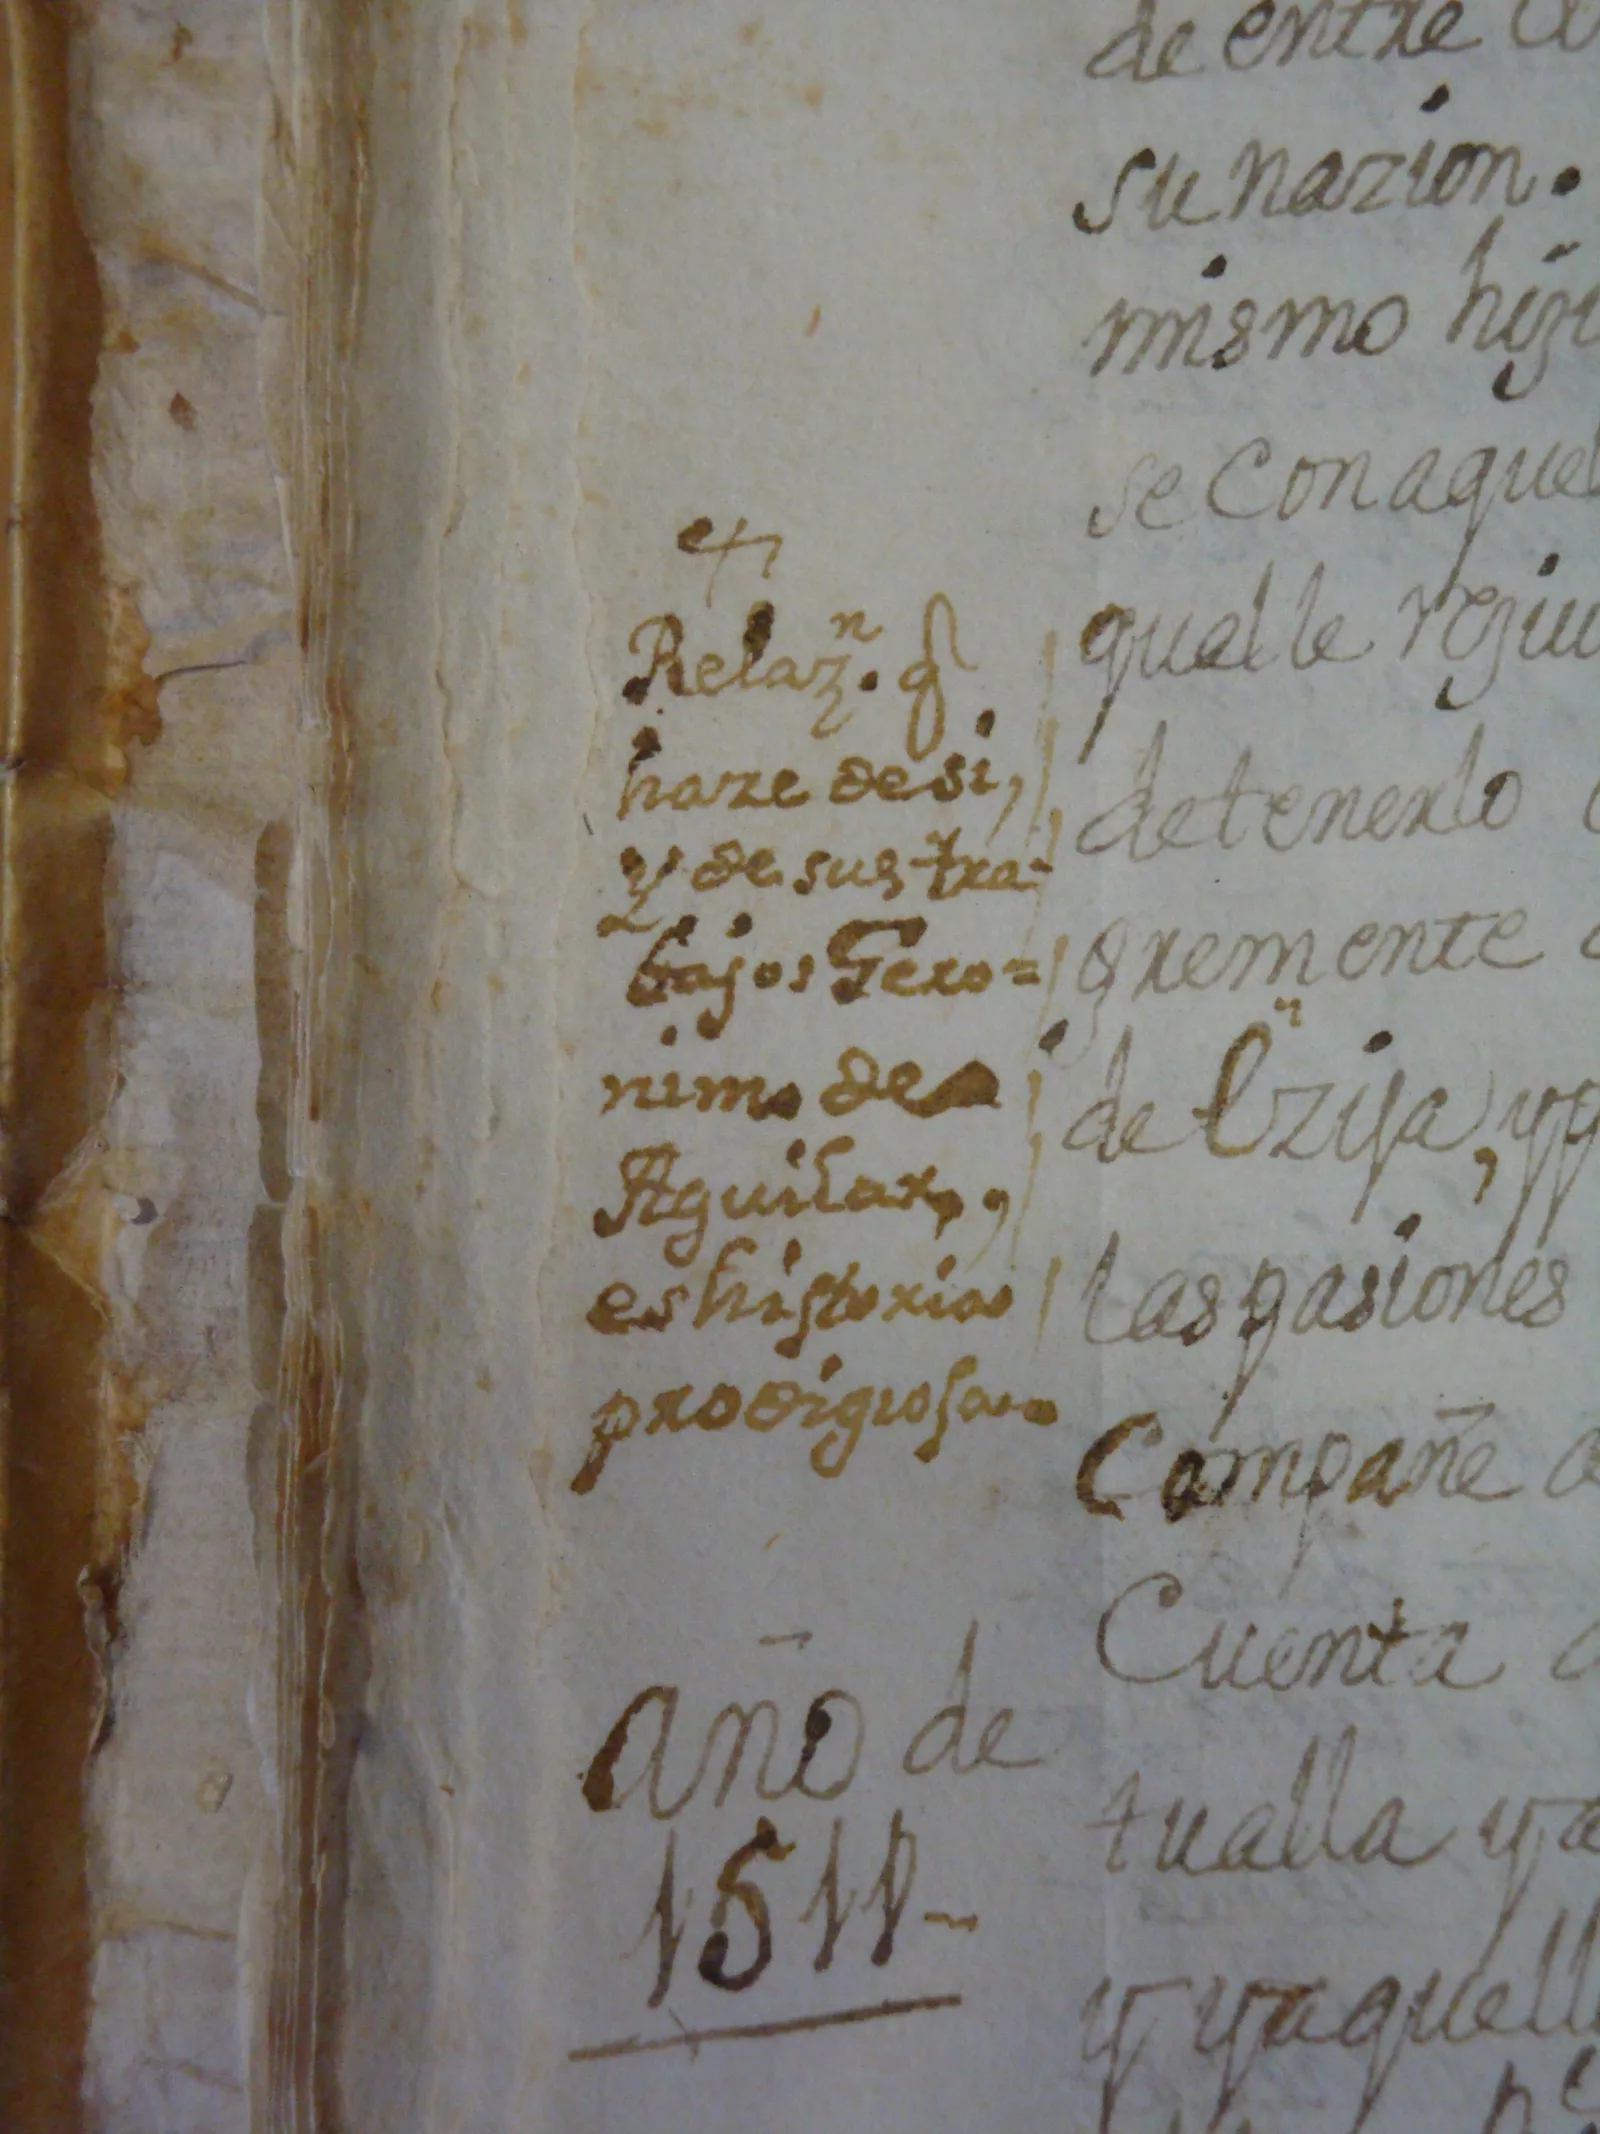 Relazn. q
haze de si,
y de sus tra-
bajos Gero=
nimo de
Aguilar,,
es historia
prodigiosa.
año de
1511-
de entre
su nazion.
mismo
se con aquel
qual le
detenerlo
gremente
de Ezija, y
las pasiones
Compañe
Cuenta
tualla y
y